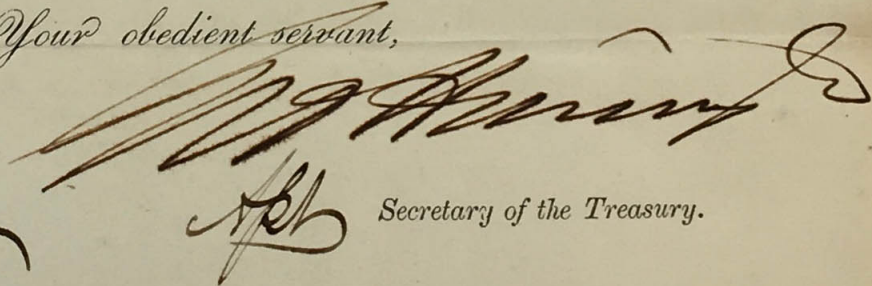 Your obedient servant,
Asst Secretary of the Treasury.